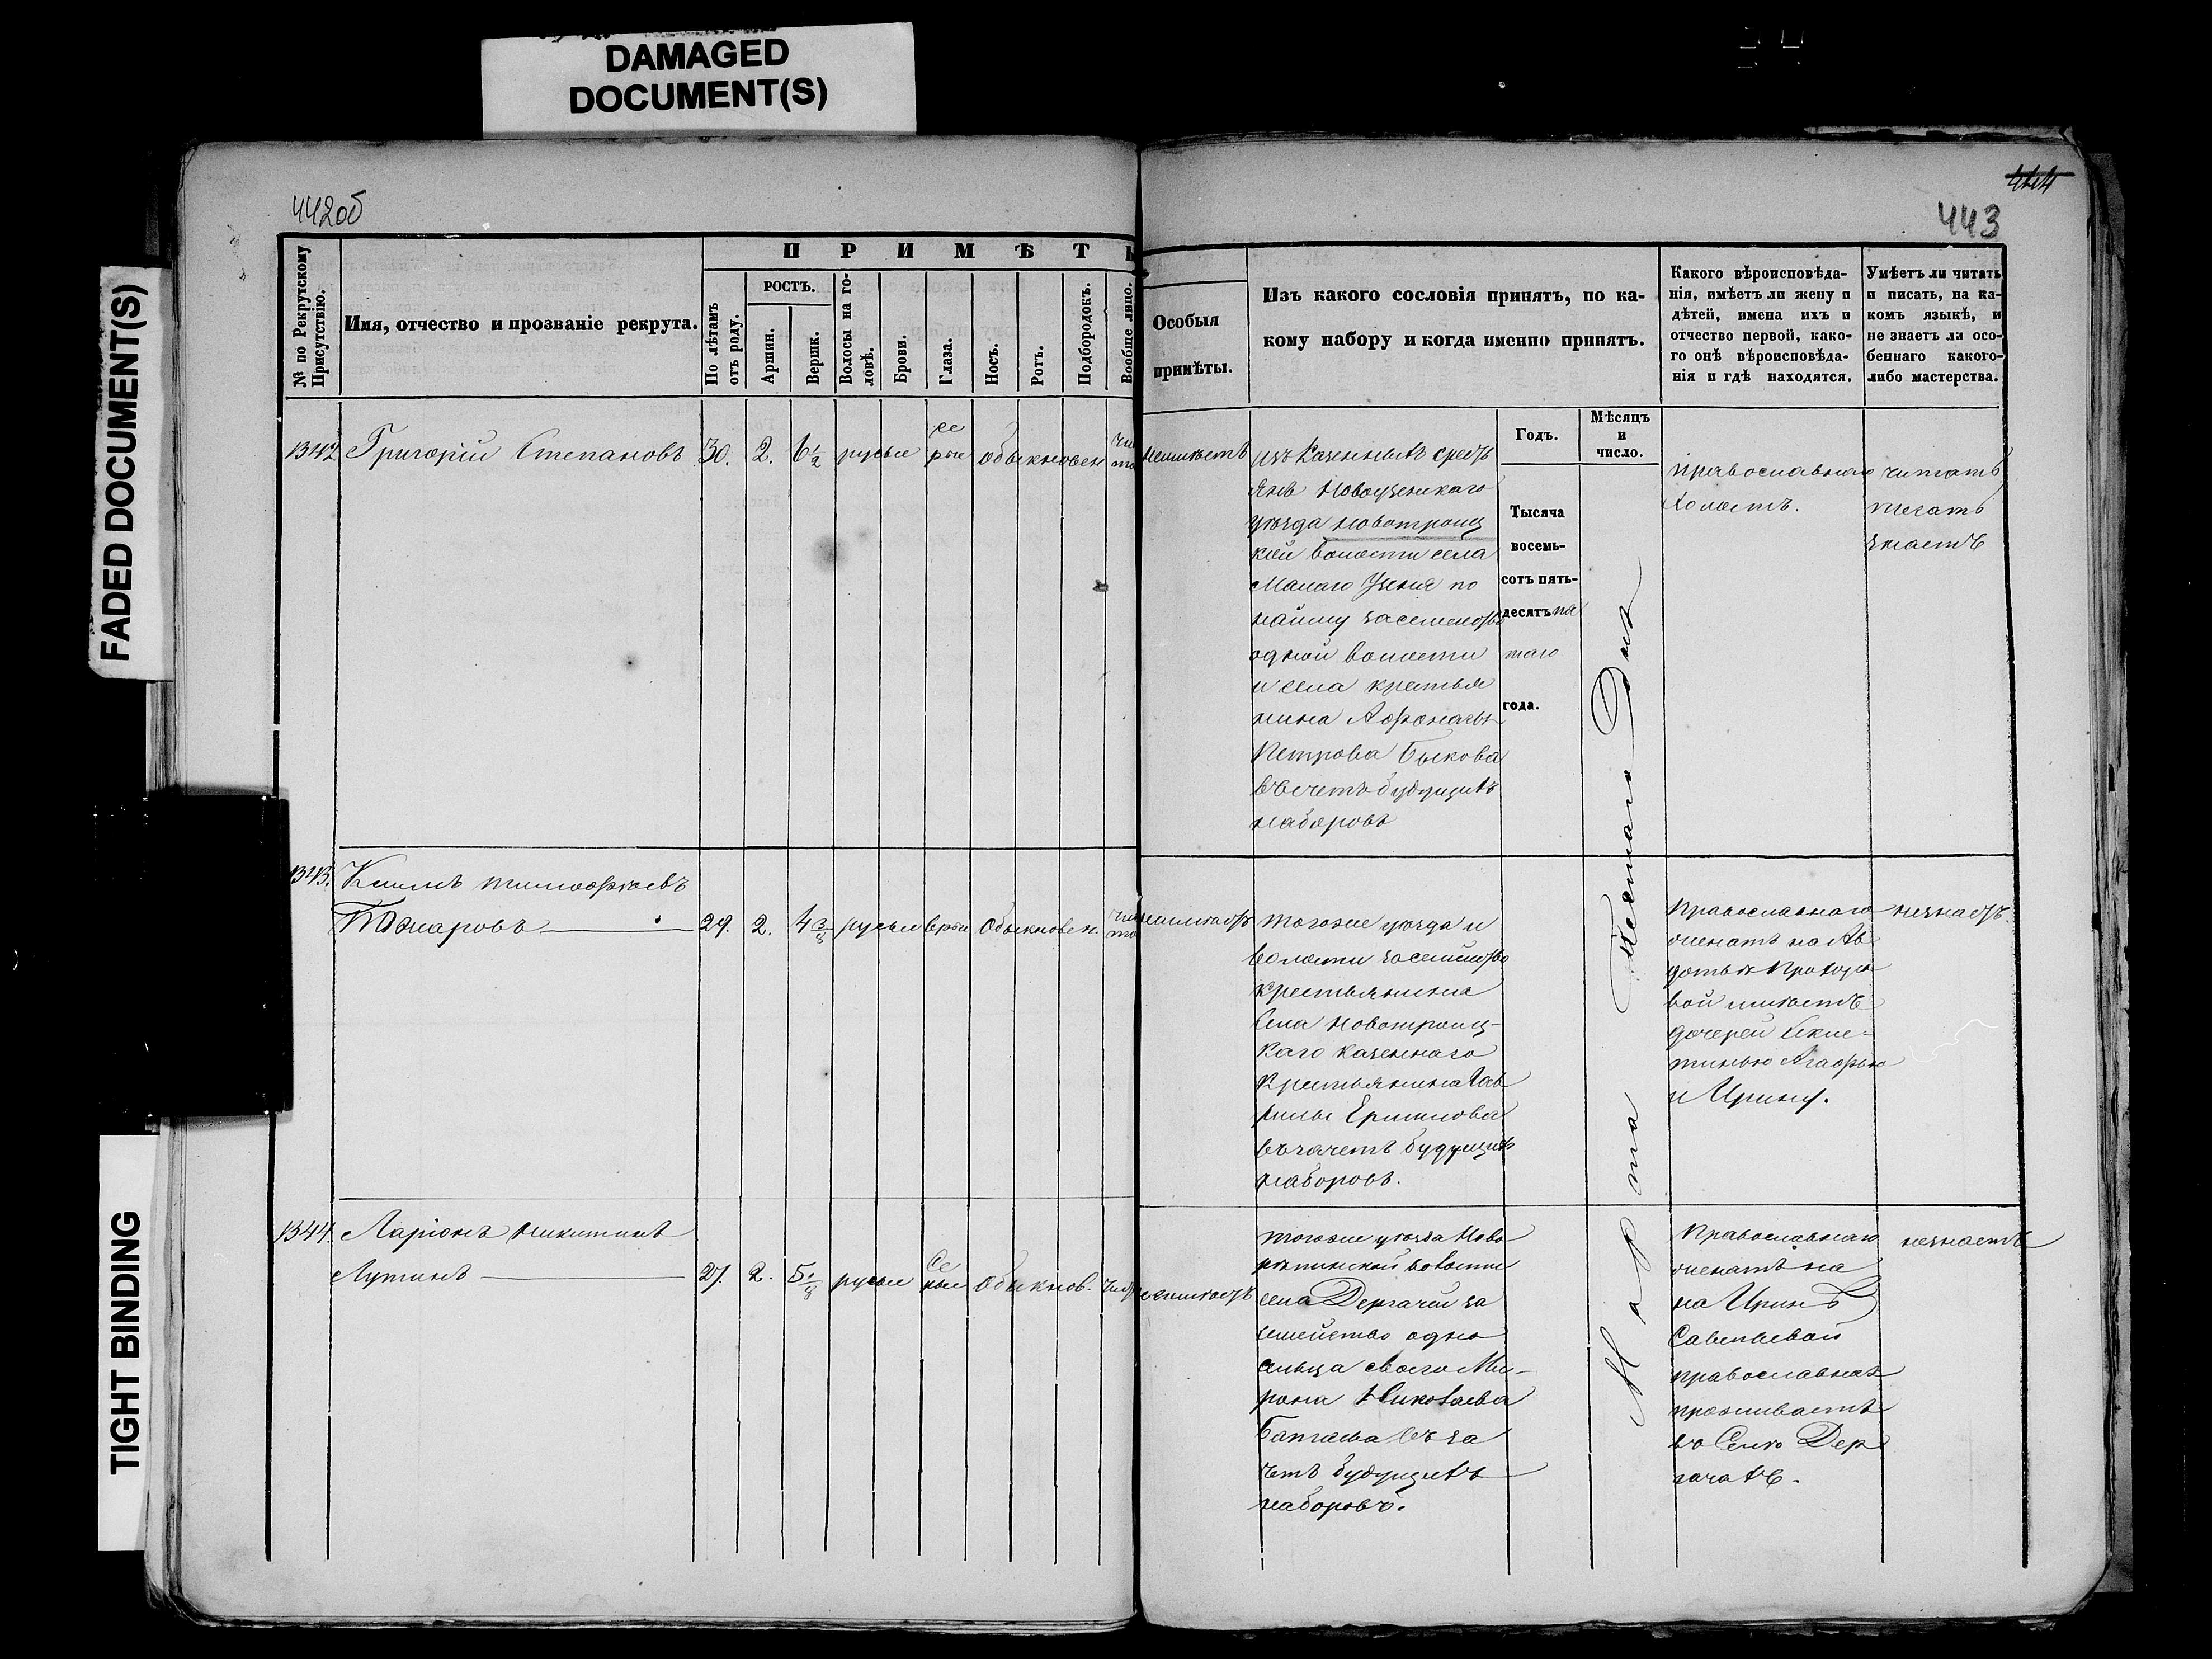 DAMAGED
DOCUMENT(S)
FADED DOCUMENT(S)
TIGHT BINDING
442об
444
443
№ по Рекрутскому
Присутствію.
Имя, отчество и прозваніе рекрута.
ПРИМѢТЫ
По лѣтамъ
отъ роду.
РОСТЪ.
Аршин.
Вершк.
Волосы на го-
ловѣ.
Брови.
Глаза.
Носъ.
Ротъ.
Подбородокъ.
Вообще лицо.
Особыя
примѣты.
Изъ какого сословія принятъ, по ка-
кому набору и когда именно принятъ.
Годъ.
Мѣсяцъ
и
число.
Какого вѣроисповѣда-
нія, имѣетъ ли жену и
дѣтей, имена ихъ и
отчество первой, како-
го онѣ вѣроисповѣда-
нія и гдѣ находятся.
Умѣетъ ли читать
и писать, на ка-
комъ языкѣ, и
не знаетъ ли осо-
беннаго какого-
либо мастерства.
1342 Григорій Степановъ 30. 2. 6 1/2 русые се
рые обыкновен чис
то неимѣетъ
изъ Казенныхъ крест
янъ Новоузенскаго
уѣзда Новотроиц
кой волости села
Малаго Узеня по
найму за семейство
одной волости
и села крестья
нина Афонасья
Петрова Быкова
въ счетъ будущихъ
наборовъ
Тысяча
восемь-
сотъ пять-
десятъ пя
таго
года.
Марта Шестаго Дня
православнаго
Холостъ.
читать
писать
знаетъ
1343. Климъ Тимофѣевъ
29. 2. 4 3/4 русые серые обыкновен. чис
то неимѣетъ
Тогоже уѣзда и
волости за семейство
крестьянина
села Новотроиц-
каго казеннаго
Крестьянина Гав
рилы Ермилова
въ зачетъ будущихъ
наборовъ.
Православнаго
женатъ на Ав
дотьѣ Прохоро
вой имѣетъ
дочерей
Агафью
и Ирину.
незнаетъ.
1344. Ларіонъ Никитинъ
Лутинъ 27. 2. русые Се
рые обыкнов. чист неимѣетъ
Тогоже уѣзда Ново
волости
села Дергачи за
семейство одно
сельца своего Ми-
рона Николаева
въ за
четъ будущихъ
наборовъ.
Православнаго
женатъ на
на Иринѣ
Савельевой
православная
проживаетъ
въ Селѣ Дер
гачахъ.
незнаетъ